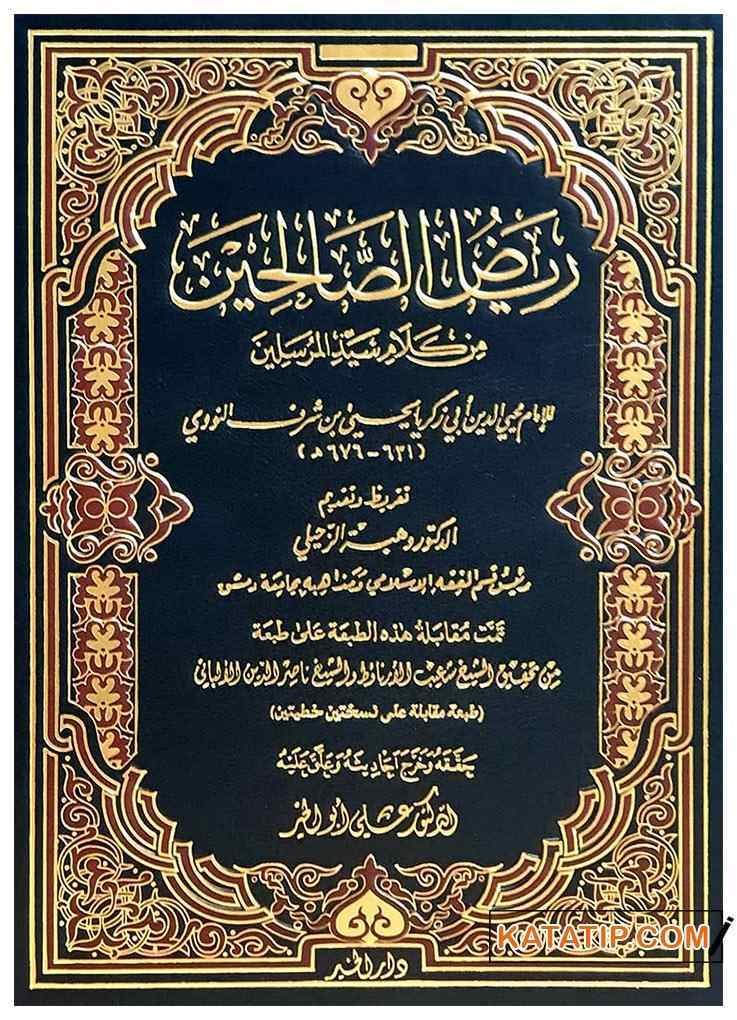 رياض الصالحين
من كلام سيد المرسلين
للإمام محيي الدين أبي زكريا يحيى بن شرف النووي
(٦٣١ - ٦٧٦ هـ)
تقريظ وتقديم
الدكتور وهبة الزحيلي
رئيس قسم الفقه الإسلامي ومذاهبه بجامعة دمشق
تمت مقابلة هذه الطبعة على طبعة
من تحقيق الشيخ شعيب الأرناؤوط والشيخ ناصر الدين الألباني
(طبعة مقابلة على نسختين خطيتين)
حققه وخرج أحاديثه وعلق عليه
الدكتور علي أبو الخير
دار الخير
KATATIP.COM